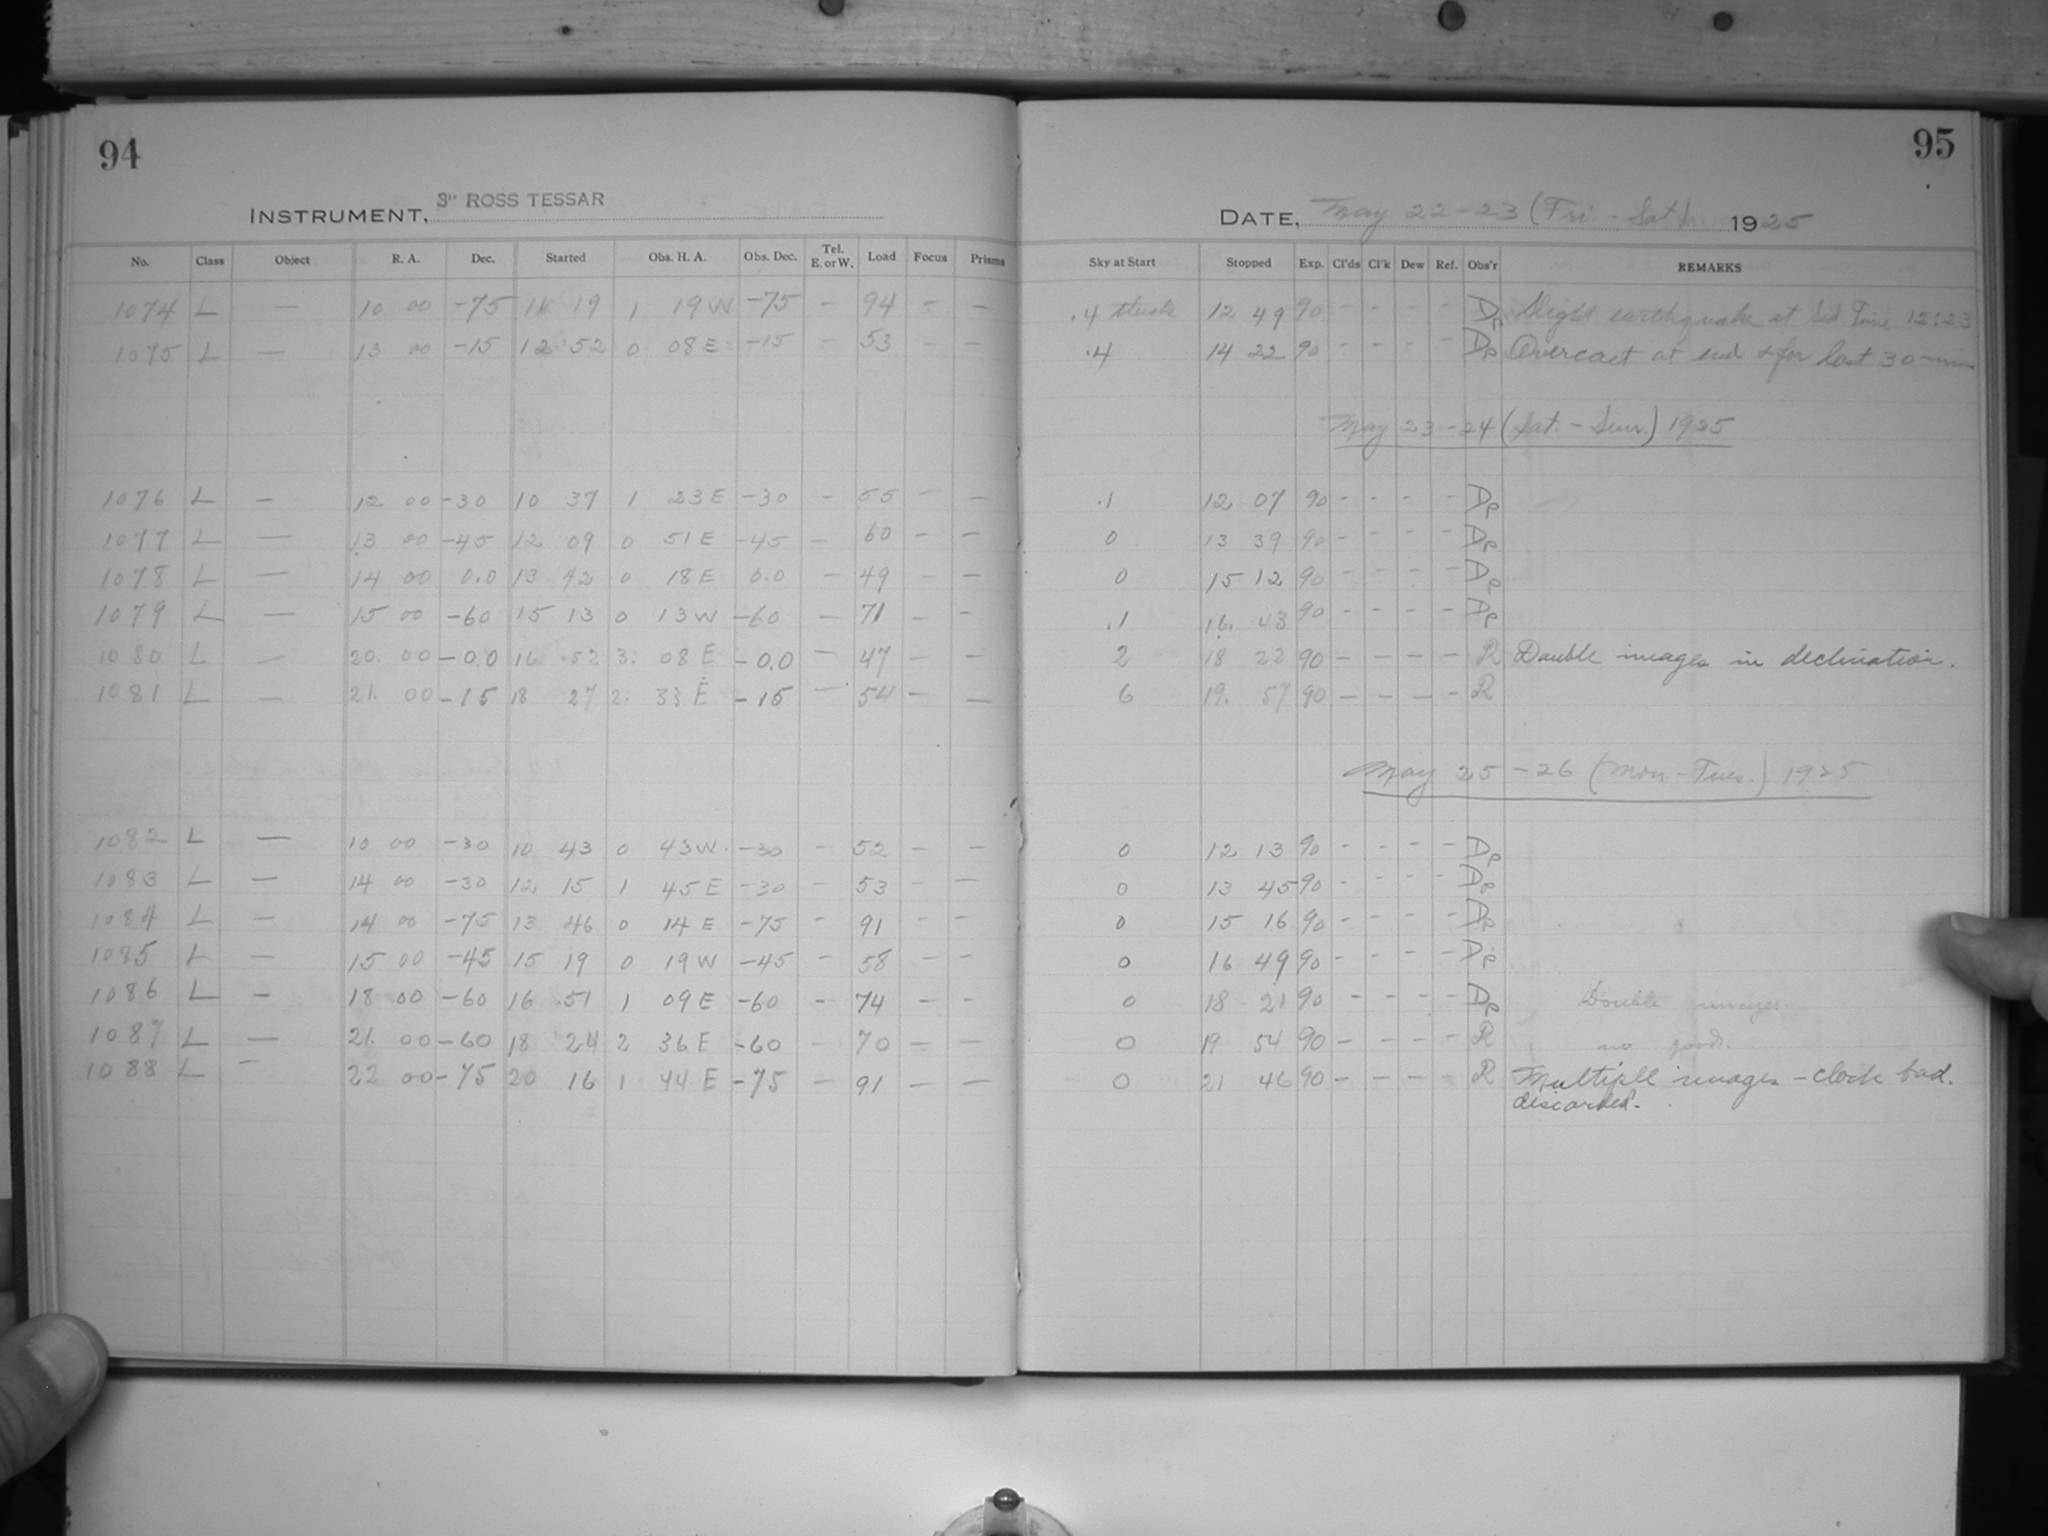 94
95
INSTRUMENT, 3" ROSS TESSAR
DATE, May 22-23 (Fri - Sat) 1925
No. Class Object R. A. Dec. Started Obs. H. A. Obs. Dec. Tel. E. or W. Load Focus Prisms Sky at Start Stopped Exp. Cl'ds Cl'k Dew Ref. Obs'r REMARKS
1074 L — 10 00 -75 11 19 1 19 W -75 - 94 - - .4 12 49 90 - - - - Dp Slight earthquake at Sid Time 12:23
1075 L — 13 00 -15 12 52 0 08 E -15 - 53 - - .4 14 22 90 - - - - Dp Overcast at end & for last 30 min
May 23-24 (Sat. - Sun.) 1925
1076 L — 12 00 -30 10 37 1 23 E -30 - 55 - - .1 12 07 90 - - - - Dp
1077 L — 13 00 -45 12 09 0 51 E -45 - 60 - - 0 13 39 90 - - - - Dp
1078 L — 14 00 0.0 13 42 0 18 E 0.0 - 49 - - 0 15 12 90 - - - - Dp
1079 L — 15 00 -60 15 13 0 13 W -60 - 71 - - .1 16. 43 90 - - - - Dp
1080 L — 20. 00 -0.0 16 52 3. 08 E -0.0 - 47 - - 2 18 22 90 - - - - R Double images in declination.
1081 L — 21. 00 -15 18 27 2. 33 E -15 - 54 - - 6 19. 57 90 - - - - R
May 25-26 (Mon. - Tues.) 1925
1082 L — 10 00 -30 10 43 0 43 W. -30 - 52 - - 0 12 13 90 - - - - Dp
1083 L — 14 00 -30 12 15 1 45 E -30 - 53 - - 0 13 45 90 - - - - Dp
1084 L — 14 00 -75 13 46 0 14 E -75 - 91 - - 0 15 16 90 - - - - Dp
1085 L — 15 00 -45 15 19 0 19 W -45 - 58 - - 0 16 49 90 - - - - Dp
1086 L — 18 00 -60 16 51 1 09 E -60 - 74 - - 0 18 21 90 - - - - Dp Double images.
1087 L — 21. 00 -60 18 24 2 36 E -60 - 70 - - 0 19 54 90 - - - - R no good.
1088 L — 22 00 -75 20 16 1 44 E -75 - 91 - - 0 21 46 90 - - - - R Multiple images - clock bad.
discarded.